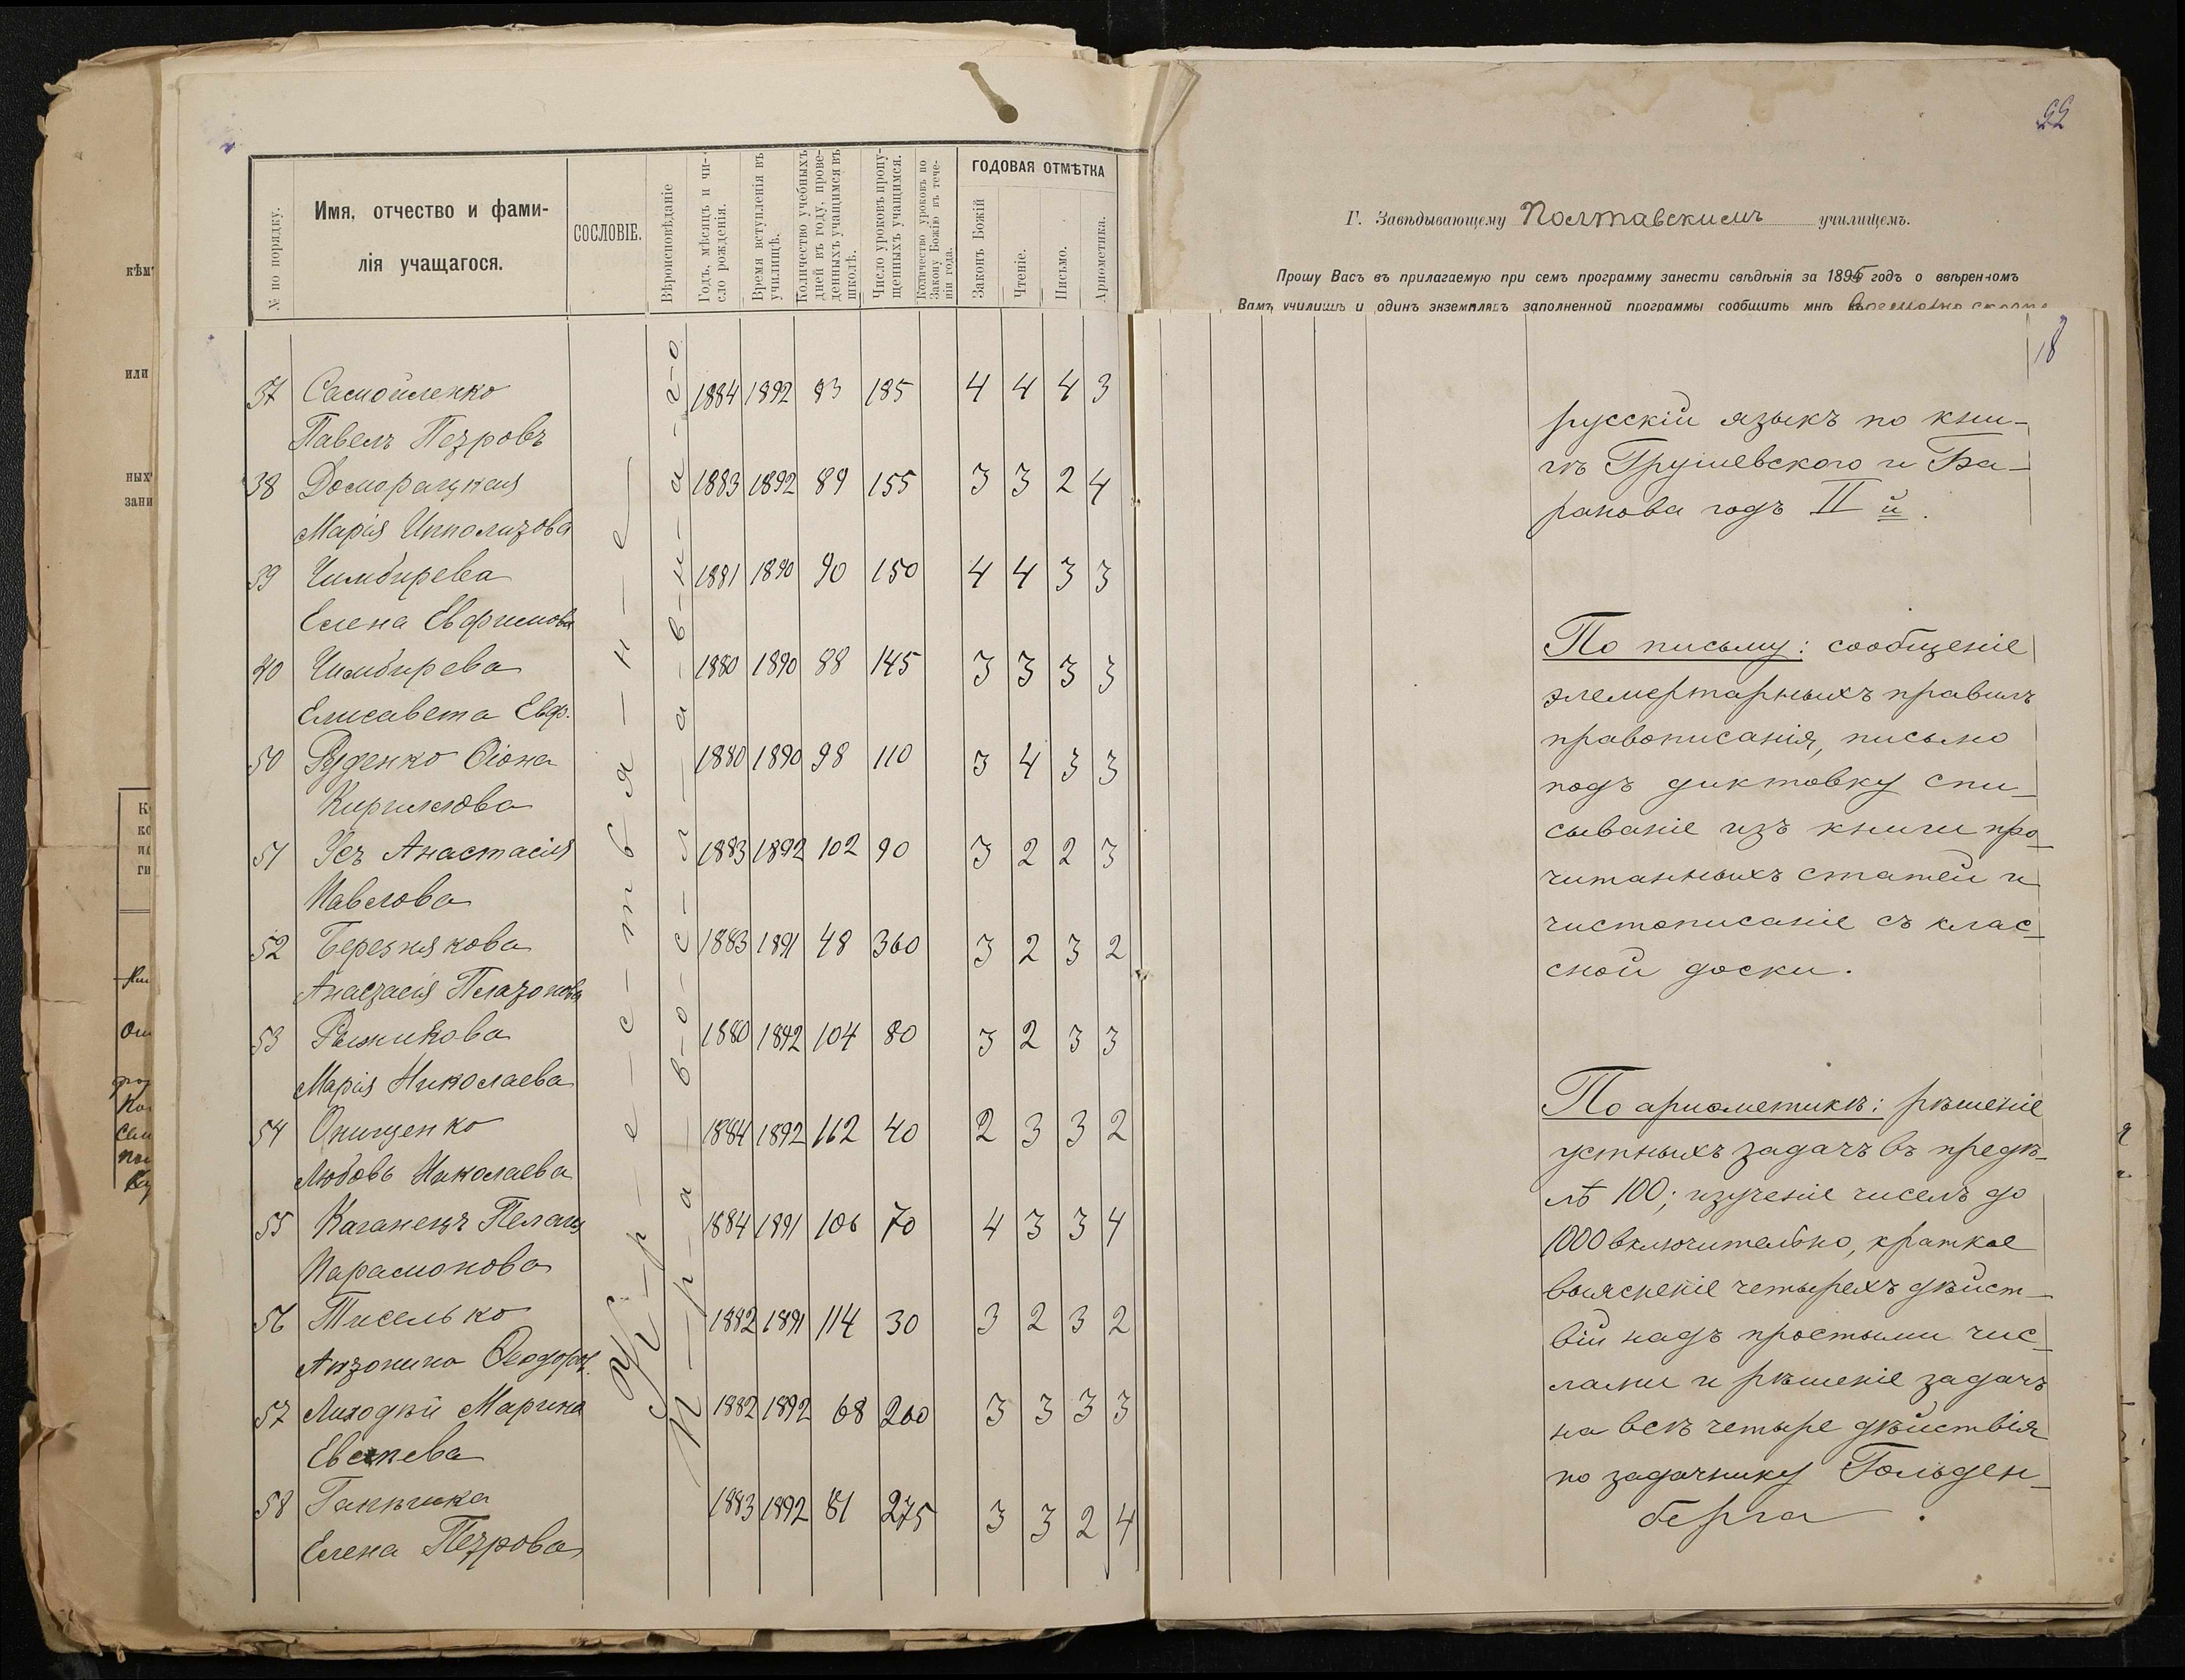 № по порядку.
Имя, отчество и фами-
лія учащагося.
СОСЛОВІЕ.
Вѣроисповѣданіе
Годъ, мѣсяцъ и чи-
сло рожденія.
Время вступленія въ
училищѣ.
Количество учебныхъ
дней въ году, прове-
денныхъ учащимся въ
школѣ.
Число уроковъ пропу-
щенныхъ учащимся.
Количество уроковъ по
Закону Божію въ тече-
ніи года.
ГОДОВАЯ ОТМѢТКА
Законъ Божій
Чтеніе.
Письмо.
Ариѳметика.
37 Самойленко 1884 1892 93 185 4 4 4 3
Павелъ Петровъ
38 Доморацкая 1883 1892 89 155 3 3 2 4
Марія Ипполитова
39 Чимбирева 1881 1890 90 150 4 4 3 3
Елена Евфимова
40 Чимбирева 1880 1890 88 145 3 3 3 3
Елисавета Евф.
50 Руденко Ѳіона 1880 1890 98 110 3 4 3 3
Кириллова
51 Усъ Анастасія 1883 1892 102 90 3 2 2 3
Павлова
52 Березнякова 1883 1891 48 360 3 2 3 2
Анастасія Платонова
53 Рыжикова 1880 1892 104 80 3 2 3 3
Марія Николаева
54 Онищенко 1884 1892 112 40 2 3 3 2
Любовь Николаева
55 Каганецъ Пелаг 1884 1891 106 70 4 3 3 4
Парамонова
56 Тиселько 1882 1891 114 30 3 2 3 2
Антонина Ѳеодор.
57 Лиходѣй Марина 1882 1892 68 260 3 3 3 3
58 1883 1892 81 275 3 3 2 4
Елена Петрова
К-р-е-с-т-ь-я-н-е
П-р-а-в-о-с-л-а-в-н-а-г-о
Г. Завѣдывающему Полтавскимъ училищемъ.
Прошу Васъ въ прилагаемую при семъ программу занести свѣдѣнія за 1895 годъ о ввѣренномъ
Вамъ училищѣ и одинъ экземпляръ заполненной программы сообщить мнѣ
18
русскій языкъ по кни-
гѣ Грушевского и Ба-
ранова годъ II й.
По письму: сообщеніе
элементарныхъ правилъ
правописанія, письмо
подъ диктовку спи-
сываніе изъ книги про-
читанныхъ статей и
чистописаніе съ клас-
сной доски.
По ариѳметикѣ: рѣшеніе
устныхъ задачъ въ предѣ-
лѣ 100; изученіе чиселъ до
1000 включительно, краткое
выясненіе четырехъ дѣйст-
вій надъ простыми чис-
лами и рѣшеніе задачъ
на всѣ четыре дѣйствія
по задачнику Гольден-
берга.